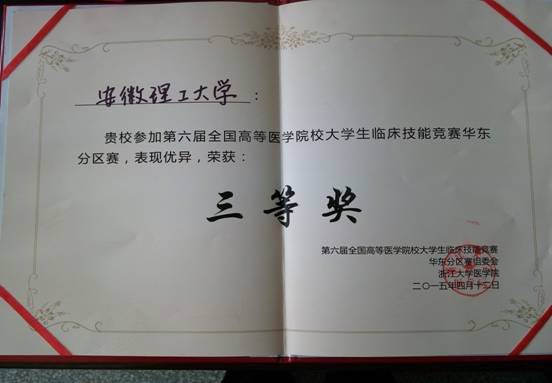 安徽理工大学：
贵校参加第六届全国高等医学院校大学生临床技能竞赛华东
分区赛，表现优异，荣获：
三等奖
第六届全国高等医学院校大学生临床技能竞赛
华东分区赛组委会
浙江大学医学院
二〇一五年四月十二日